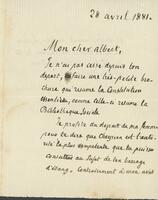 28 avril 1881.
Mon cher Albert,
Je n'ai pas cessé depuis ton
départ, faire une très-petite bro-
chure qui résume la Constitution
essentielle, comme celle-ci résume la
Bibliothèque Sociale.
Je profite du départ de ma femme
pour te dire que Cheysson est l'auto-
rité la plus compétente que tu puisses
consulter au sujet de ton barrage
d'étang. Contrairement à mon avis